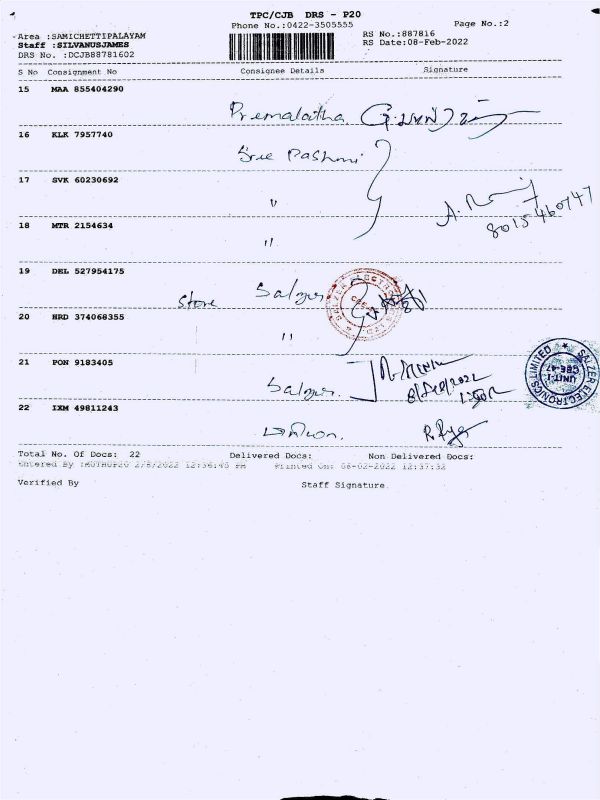 TPC/CJB DRS - P20
Phone No.:0422-3505555
Page No.:2
Area :SAMICHETTIPALAYAM
RS No.:887816
Staff :SILVANUSJAMES
RS Date:08-Feb-2022
DRS No. :DCJB88781602
S No Consignment No Consignee Details Signature
15 MAA 855404290
Premalatha
16 KLK 7957740
Sree Pashmi
17 SVK 60230692
"
8015460747
18 MTR 2154634
"
19 DEL 527954175
Store Salzer
20 HRD 374068355
"
21 PON 9183405
Salzer.
SALZER ELECTRONICS LIMITED
UNIT-1
CBE-47
22 IXM 49811243
Total No. Of Docs: 22 Delivered Docs: Non Delivered Docs:
Entered By :MUTHUP20 2/8/2022 12:36:45 PM Printed On: 08-02-2022 12:37:32
Verified By Staff Signature